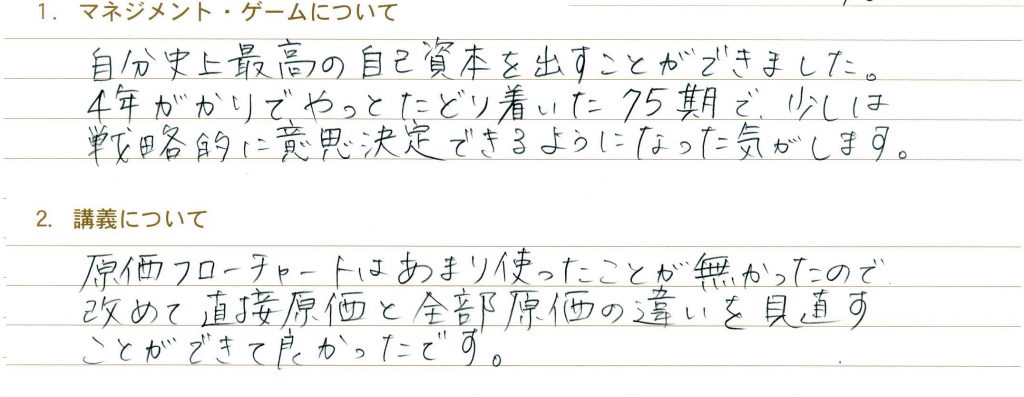 1. マネジメント・ゲームについて
自分史上最高の自己資本を出すことができました。
4年がかりでやっとたどり着いた75期で、少しは
戦略的に意思決定できるようになった気がします。
2. 講義について
原価フローチャートはあまり使ったことが無かったので
改めて直接原価と全部原価の違いを見直す
ことができて良かったです。